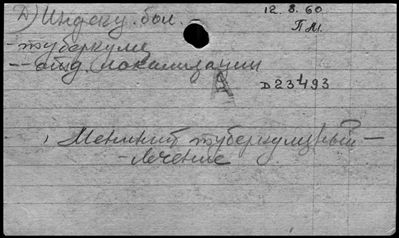 Д) Индекс. бол.
12. 8. 60
П.М.
- туберкулез
-- отд. локализации
D 23493
1 Менингит туберкулезный —
- лечение